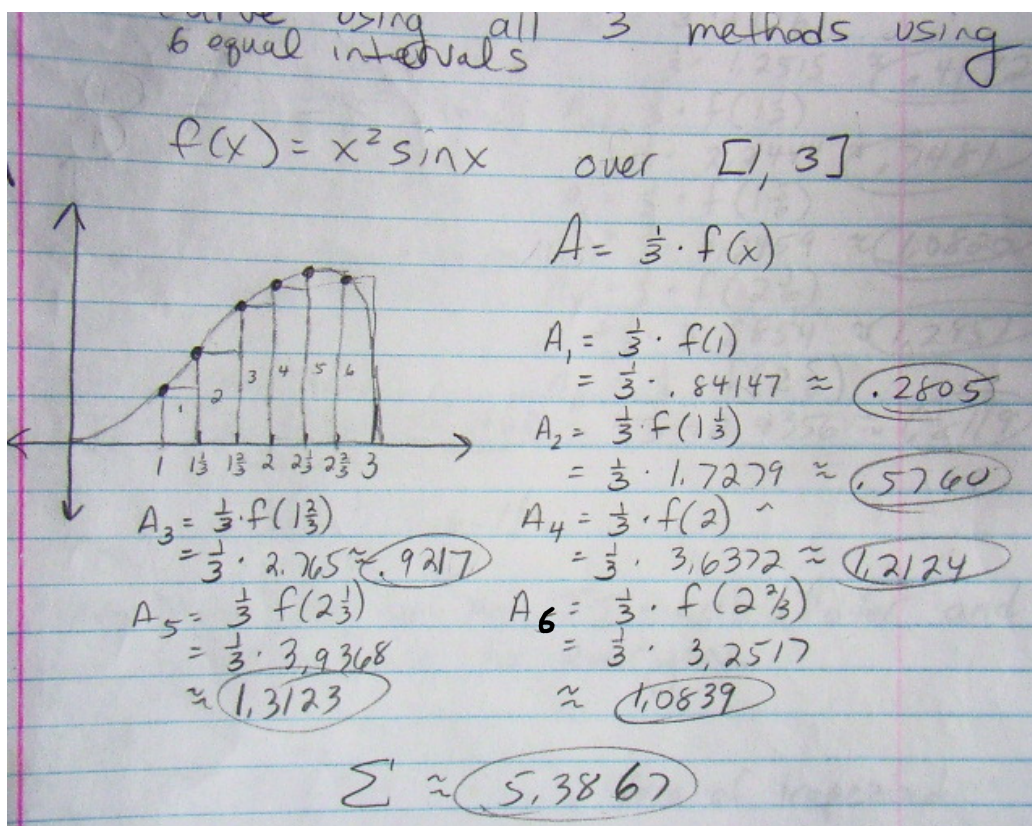 curve using all 3 methods using
6 equal intervals
f(x) = x² sinx over [1, 3]
A = 1/3 · f(x)
1 2 3 4 5 6
1 1 1/3 1 2/3 2 2 1/3 2 2/3 3
A₁ = 1/3 · f(1)
= 1/3 · .84147 ≈ .2805
A₂ = 1/3 · f(1 1/3)
= 1/3 · 1.7279 ≈ .5760
A₃ = 1/3 · f(1 2/3)
= 1/3 · 2.765 ≈ .9217
A₄ = 1/3 · f(2)
= 1/3 · 3,6372 ≈ 1,2124
A₅ = 1/3 f(2 1/3)
= 1/3 · 3,9368
≈ 1,3123
A₆ = 1/3 · f(2 2/3)
= 1/3 · 3,2517
≈ 1,0839
Σ ≈ 5,3867